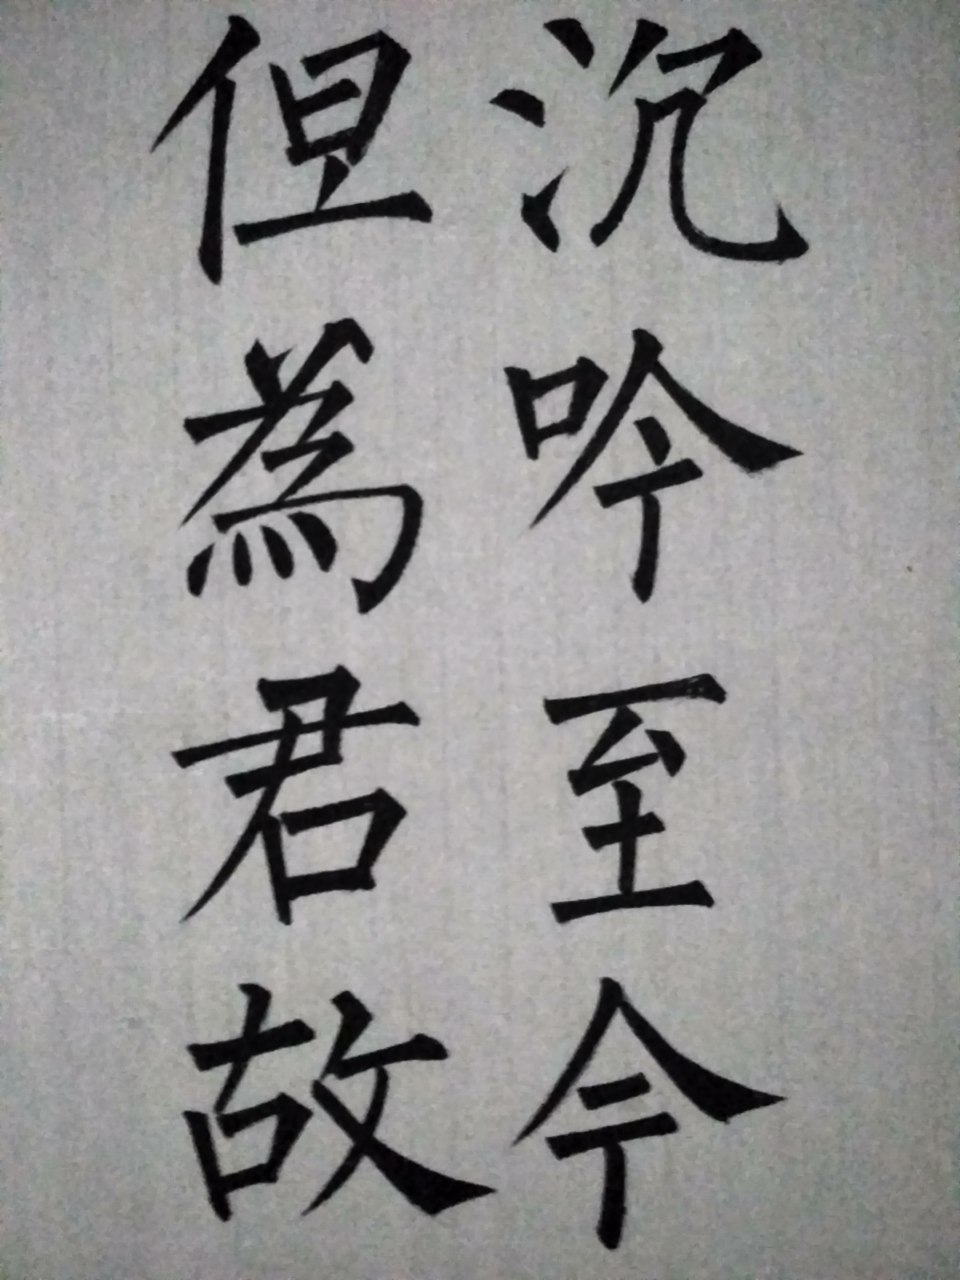 沉吟至今
但為君故